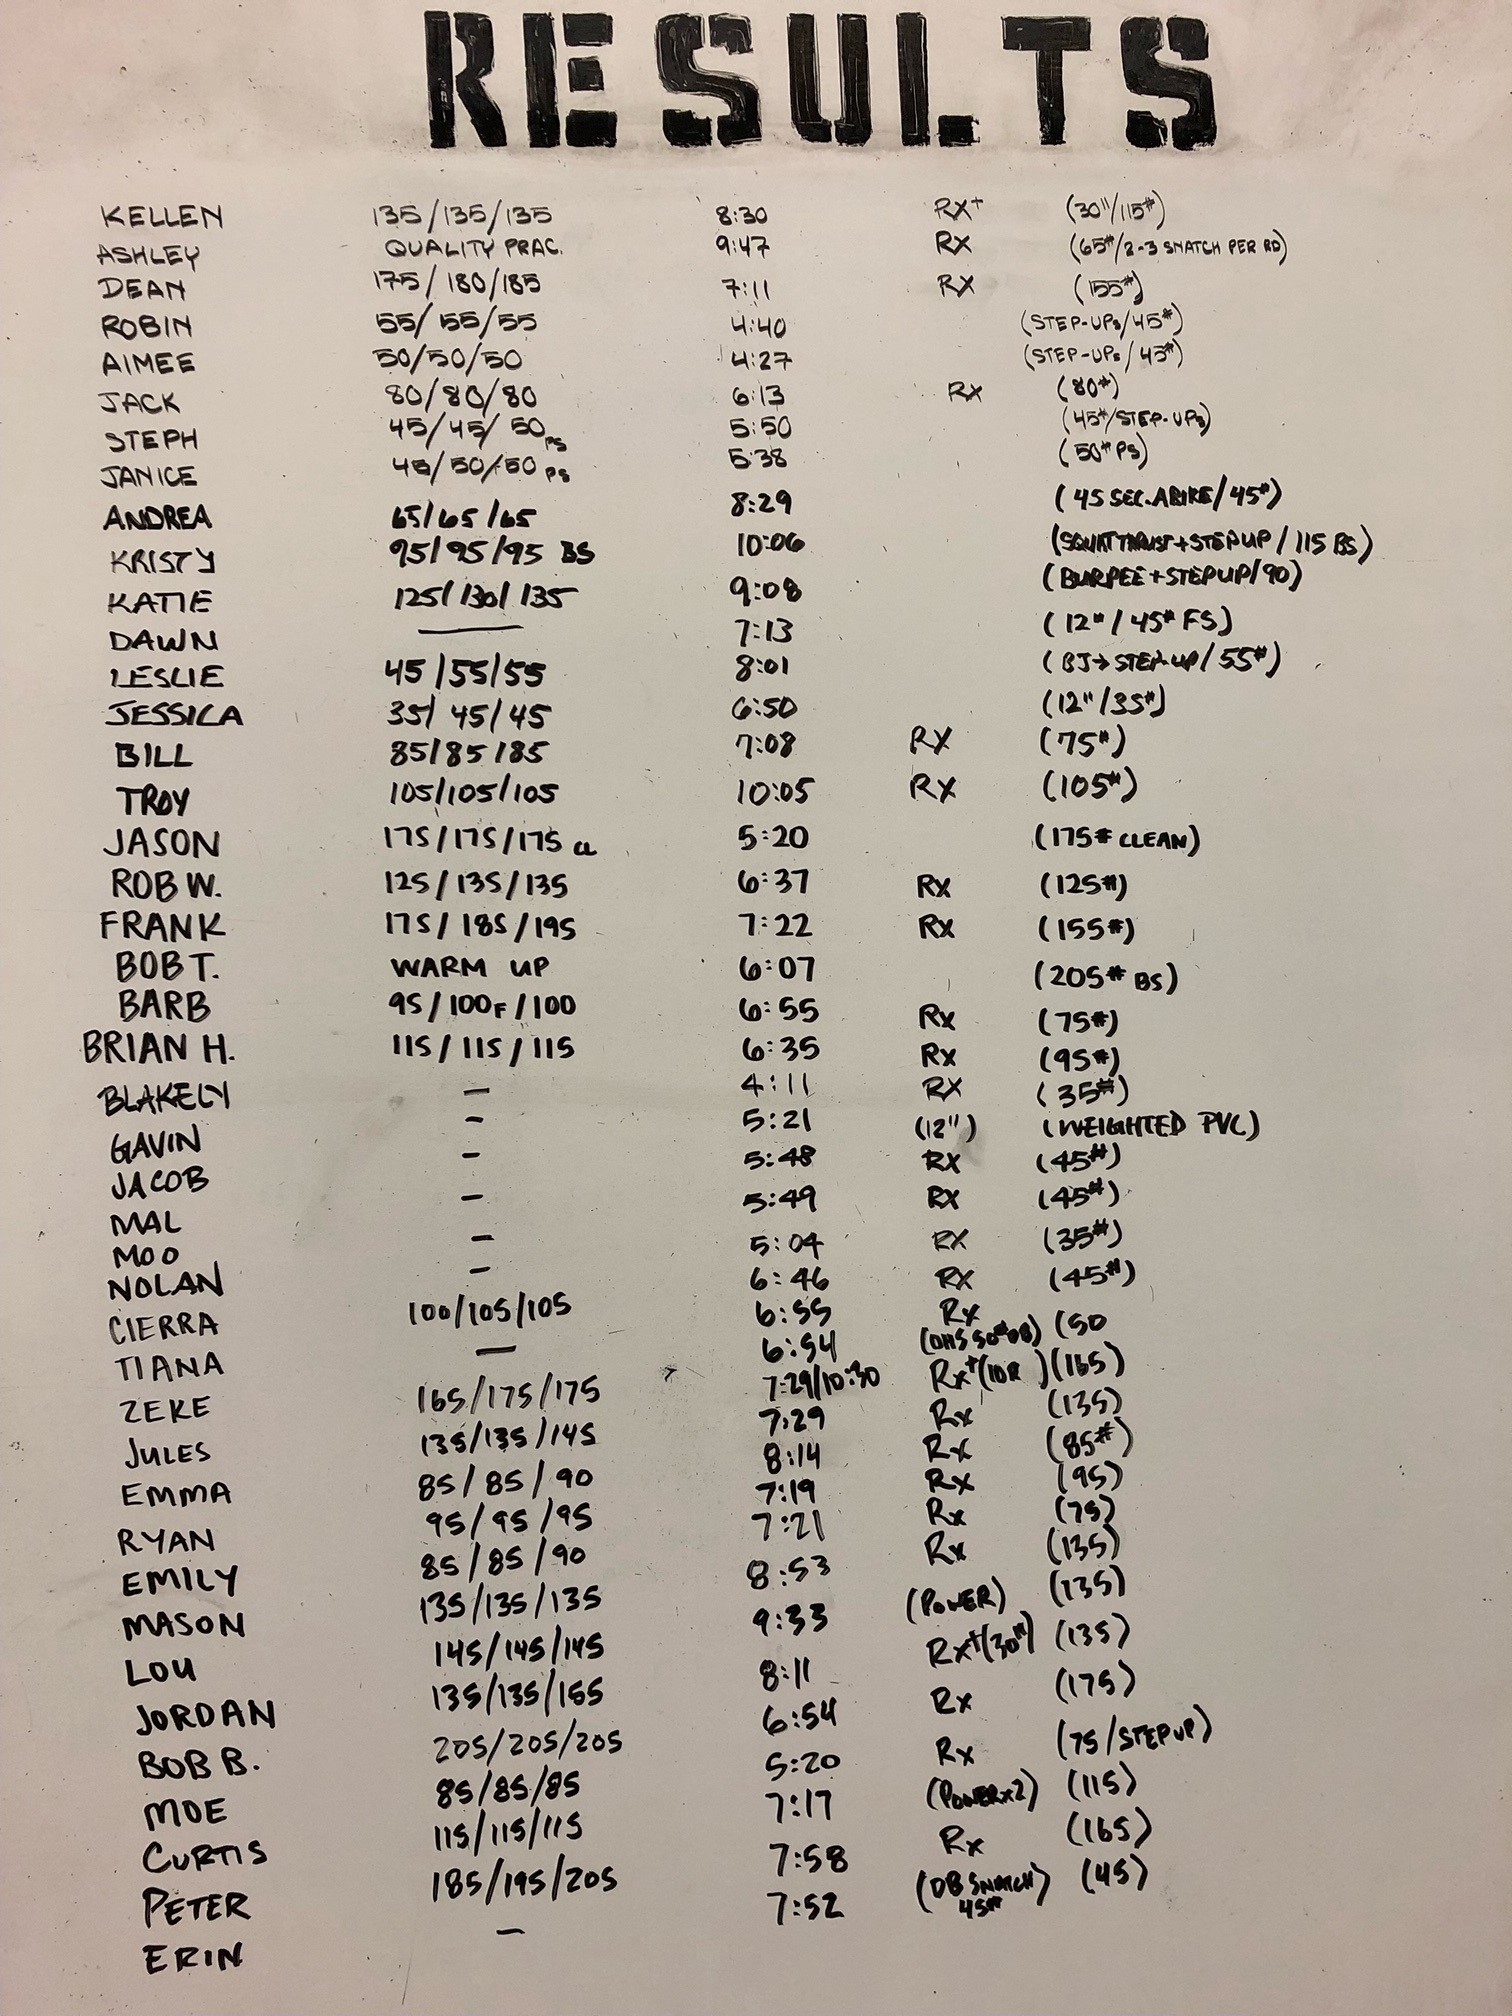 RESULTS
KELLEN 135/135/135 8:30 RX+ (30"/115#)
ASHLEY QUALITY PRAC. 9:47 RX (65#/2-3 SNATCH PER RD)
DEAN 175/180/185 7:11 RX (155#)
ROBIN 55/55/55 4:40 (STEP-UPS/45#)
AIMEE 50/50/50 4:27 (STEP-UPS/45#)
JACK 80/80/80 6:13 RX (80#)
STEPH 45/45/50 PS 5:50 (45#/STEP-UPS)
JANICE 45/50/50 PS 5:38 (50# PS)
ANDREA 65/65/65 8:29 (45 SEC. ABIKE/45#)
KRISTY 95/95/95 BS 10:06 (SQUAT THRUST+STEPUP/115 BS)
KATIE 125/130/135 9:08 (BURPEE+STEPUP/90)
DAWN — 7:13 (12"/45# FS)
LESLIE 45/55/55 8:01 (BJ→STEP-UP/55#)
JESSICA 35/45/45 6:50 (12"/35#)
BILL 85/85/85 7:08 RX (75#)
TROY 105/105/105 10:05 RX (105#)
JASON 175/175/175 CL 5:20 (175# CLEAN)
ROB W. 125/135/135 6:37 RX (125#)
FRANK 175/185/195 7:22 RX (155#)
BOB T. WARM UP 6:07 (205# BS)
BARB 95/100F/100 6:55 RX (75#)
BRIAN H. 115/115/115 6:35 RX (95#)
BLAKELY — 4:11 RX (35#)
GAVIN — 5:21 (12") (WEIGHTED PVC)
JACOB — 5:48 RX (45#)
MAL — 5:49 RX (45#)
MOO — 5:04 RX (35#)
NOLAN — 6:46 RX (45#)
CIERRA 100/105/105 6:55 Rx
TIANA — 6:54 (OHS 50# DB) (50
ZEKE 165/175/175 7:29/10:30 Rx+(10R ) (165)
JULES 135/135/145 7:29 Rx (135)
EMMA 85/85/90 8:14 Rx (85#)
RYAN 95/95/95 7:19 Rx (95)
EMILY 85/85/90 7:21 Rx (75)
MASON 135/135/135 8:53 Rx (135)
LOU 145/145/145 9:33 (POWER) (135)
JORDAN 135/135/155 8:11 Rx+(30") (135)
BOB B. 205/205/205 6:54 Rx (175)
MOE 85/85/85 5:20 Rx (75/STEP UP)
CURTIS 115/115/115 7:17 (POWERx2) (115)
PETER 185/195/205 7:58 Rx (165)
ERIN — 7:52 (DB SNATCH) 45# (45)